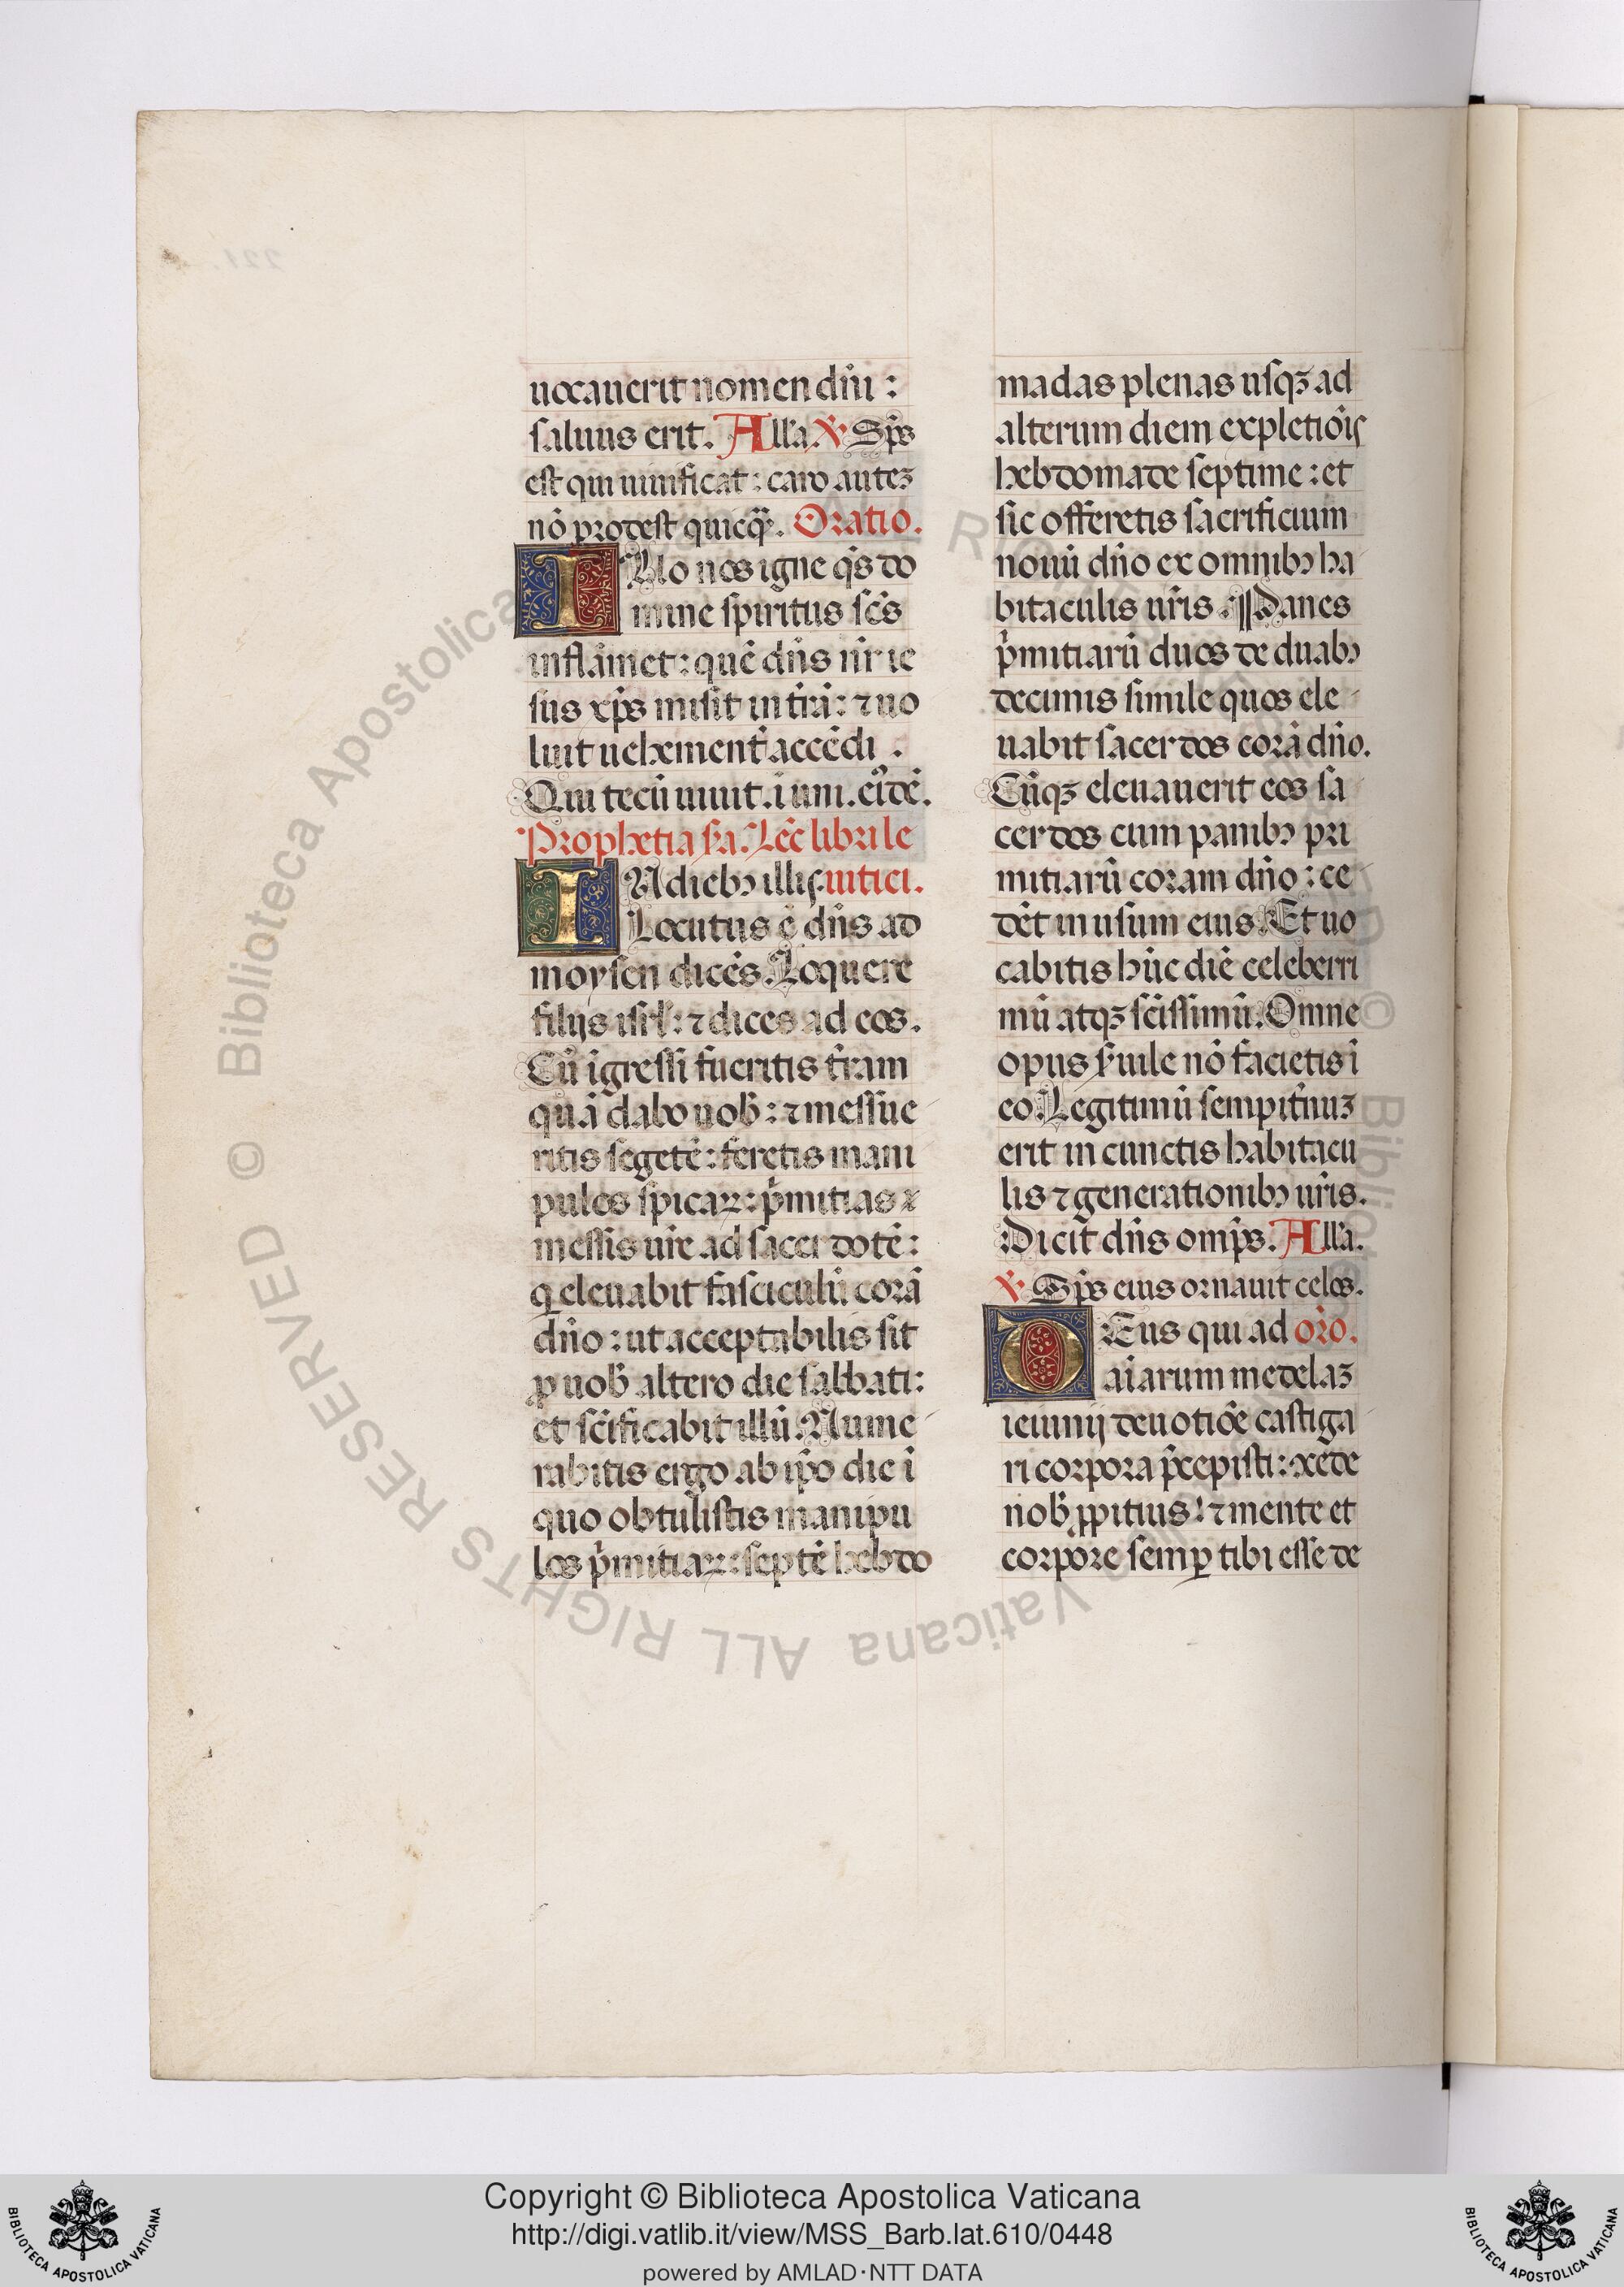 uocauerit nomen dn̄i :
saluus erit. All'a. ℣ Sp̄s
est qui uiuificat : caro auteꝫ
nō prodest quicq̄. Oratio.
ILlo nos igne q̄s do
mine spiritus sc̄s
inflāmet : quē dn̄s nr̄ ie
sus xp̄s misit in tr̄ā : ⁊ uo
luit uehement̄ accēdi .
Qui tecū uiuit. ī uni. eiꝰdē.
Prophetia sā. Lēc libri le
IN diebꝫ illis. uitici.
Locutus ē dn̄s ad
moysen dicēs. Loquere
filijs isrl̄ : ⁊ dices ad eos.
Cū īgressi fueritis tr̄am
quā dabo uob̄ : ⁊ messue
ritis segetē : feretis mani
pulos spicaꝝ : p̄mitias
messis ur̄e ad sacerdotē :
q̄ eleuabit fasciculū corā
dn̄o : ut acceptabilis sit
ꝓ uob̄ altero die sabbati :
et sc̄ificabit illū. Nume
rabitis ergo ab ip̄o die ī
quo obtulistis manipu
los p̄mitiaꝝ : septē hebdo
madas plenas usqꝫ ad
alterum diem expletiōis
hebdomade septime : et
sic offeretis sacrificium
nouū dn̄o ex omnibꝫ ha
bitaculis ur̄is. Panes
p̄mitiarū duos de duabꝫ
decimis simile quos ele
uabit sacerdos corā dn̄o.
Cūqꝫ eleuauerit eos sa
cerdos cum panibꝫ pri
mitiarū coram dn̄o : ce
dēt in usum eius. Et uo
cabitis hūc diē celeberri
mū atqꝫ sc̄issimū. Omne
opus s̄uile nō facietis ī
eo. Legitimū sempit̄nuꝫ
erit in cunctis habitacu
lis ⁊ generationibꝫ ur̄is.
Dicit dn̄s omp̄s. All'a.
℣ Sp̄s eius ornauit celos.
DEus qui ad or̄o.
aīarum medelaꝫ
ieiunij deuotiōe castiga
ri corpora p̄cepisti : ↄ̄cede
nob̄ ꝓpitius : ⁊ mente et
corpore semꝑ tibi esse de
© Biblioteca Apostolica Vaticana ALL RIGHTS RESERVED
Copyright © Biblioteca Apostolica Vaticana
http://digi.vatlib.it/view/MSS_Barb.lat.610/0448
powered by AMLAD·NTT DATA
BIBLIOTECA APOSTOLICA VATICANA
BIBLIOTECA APOSTOLICA VATICANA